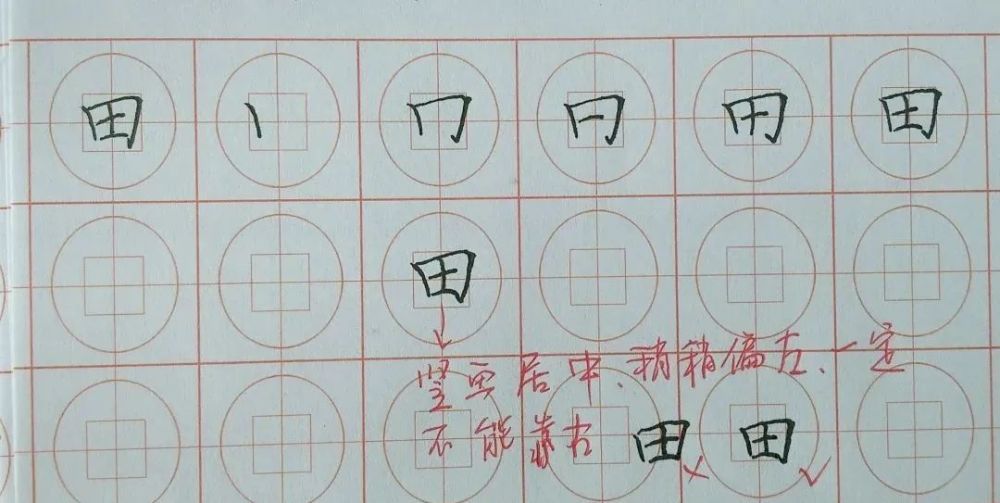 田 丨 冂 日 田 田
田
竖画居中、稍稍偏左、一定
不能靠右 田 × 田 ✓